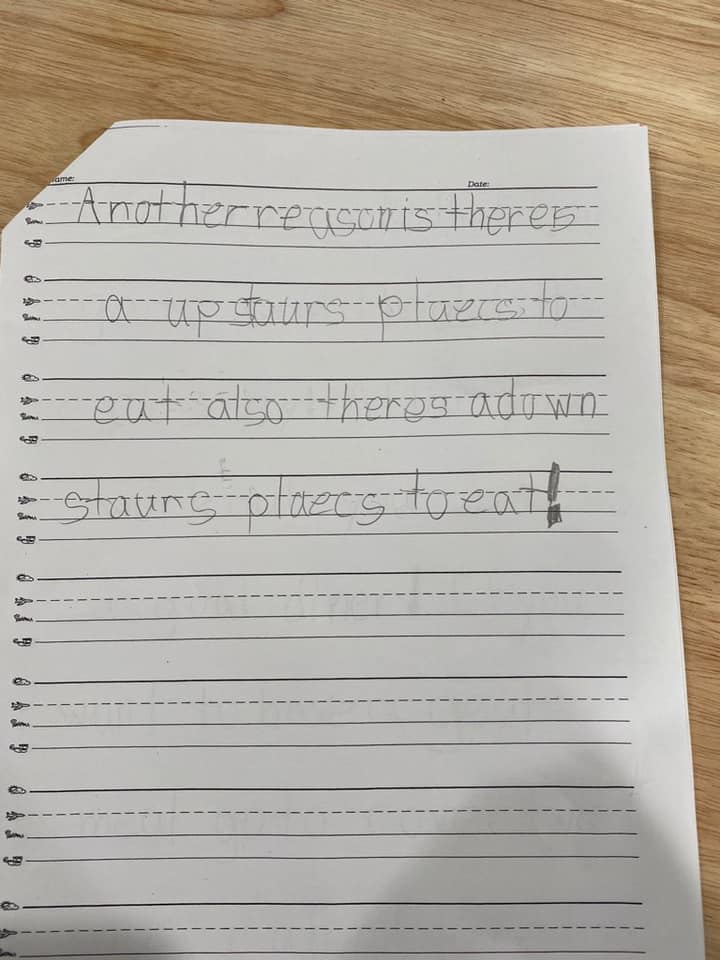 ame:
Date:
Another reason is theres
a up staurs plaecs to
eat also theres a down
staurs plaecs to eat!